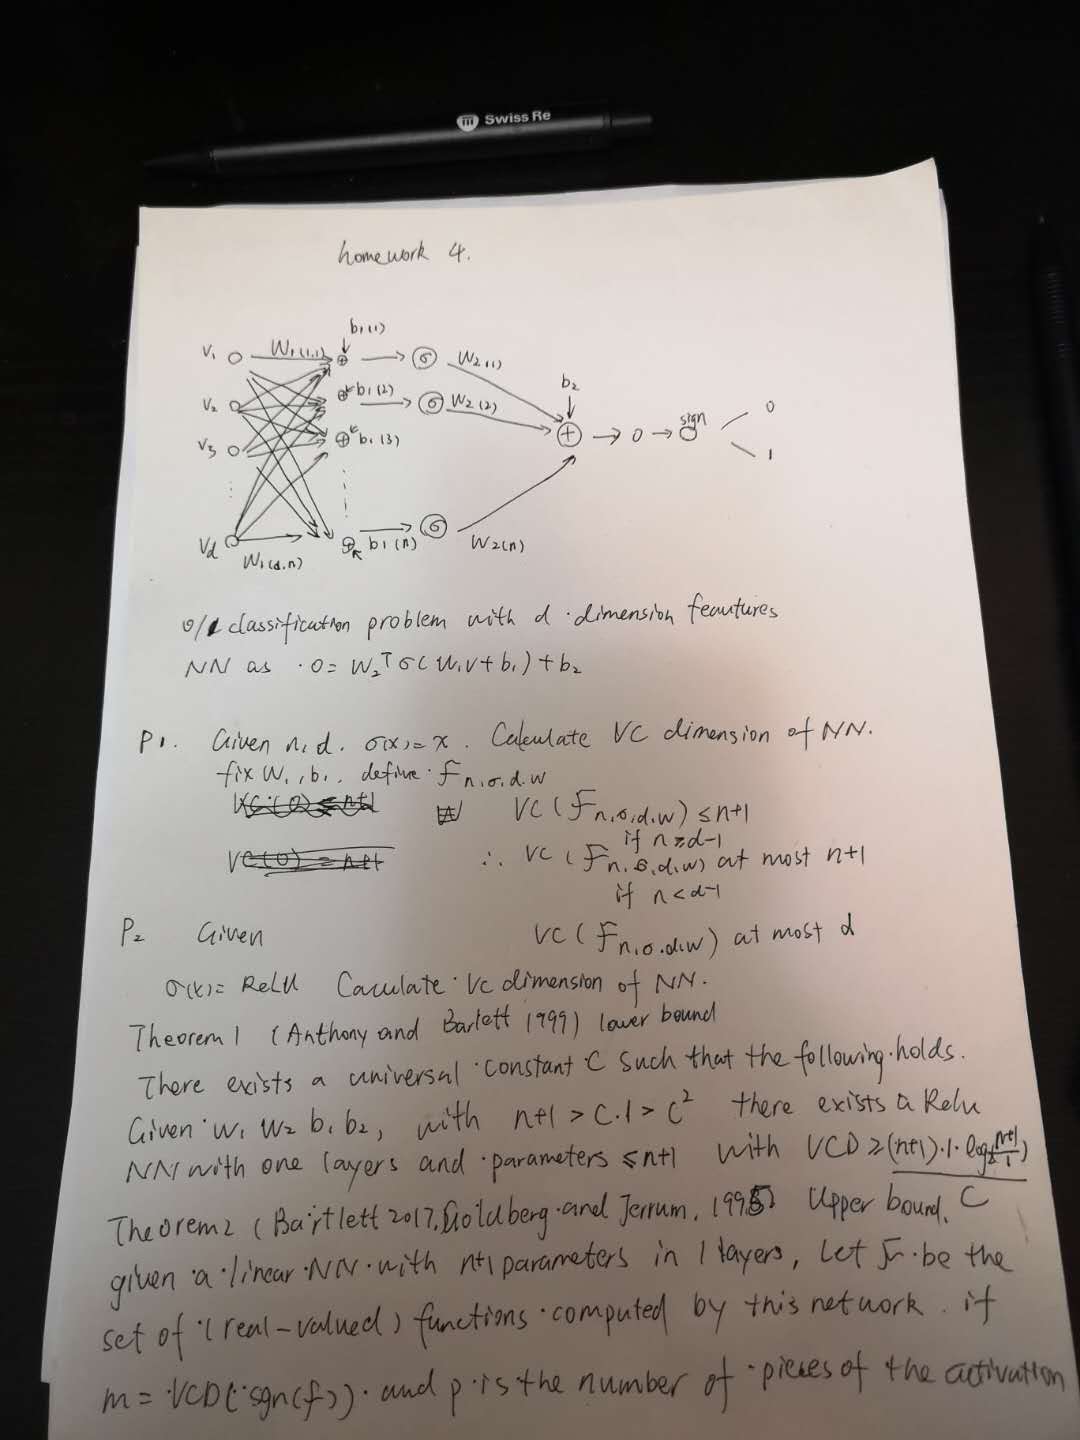 Swiss Re
homework 4.
b1(1)
V1 W1(1,1) ⊕ σ W2(1)
V2 ⊕ b1(2) σ W2(2)
b2
V3 ⊕ b1(3) ⊕ → 0 → sign 0
1
Vd W1(d,n) ⊕ b1(n) σ W2(n)
0/1 classification problem with d·dimension feautures
NN as · o = W2ᵀ σ(W1V+b1)+b2
P1. Given n, d. σ(x)=x. Calculate VC dimension of NN.
fix W1, b1, define · Fn,σ,d,w
VC(0) ≤ n+1 VC(Fn,σ,d,w) ≤ n+1
if n≥d-1
VC(0) = n+1 ∴ VC(Fn,σ,d,w) at most n+1
if n<d-1
P2 Given VC(Fn,σ,d,w) at most d
σ(x)= ReLU Caculate · VC dimension of NN.
Theorem 1 (Anthony and Barlett 1999) lower bound
There exists a universal ·constant ·C such that the following·holds.
Given· W1 W2 b1 b2, with n+1 > C·1 > C² there exists a Relu
NN with one layers and ·parameters ≤n+1 with VCD ≥ (n+1)·1·log2 n+1/1)
C
Theorem2 (Bartlett 2017, Goldberg·and Jerrum, 1995) Upper bound.
given ·a·linear·NN·with n+1 parameters in 1 layers, Let F be the
set of ·(real-valued) functions·computed by this network. if
m = ·VCD(·sgn(f))· and p·is the number of ·pieces of the activation